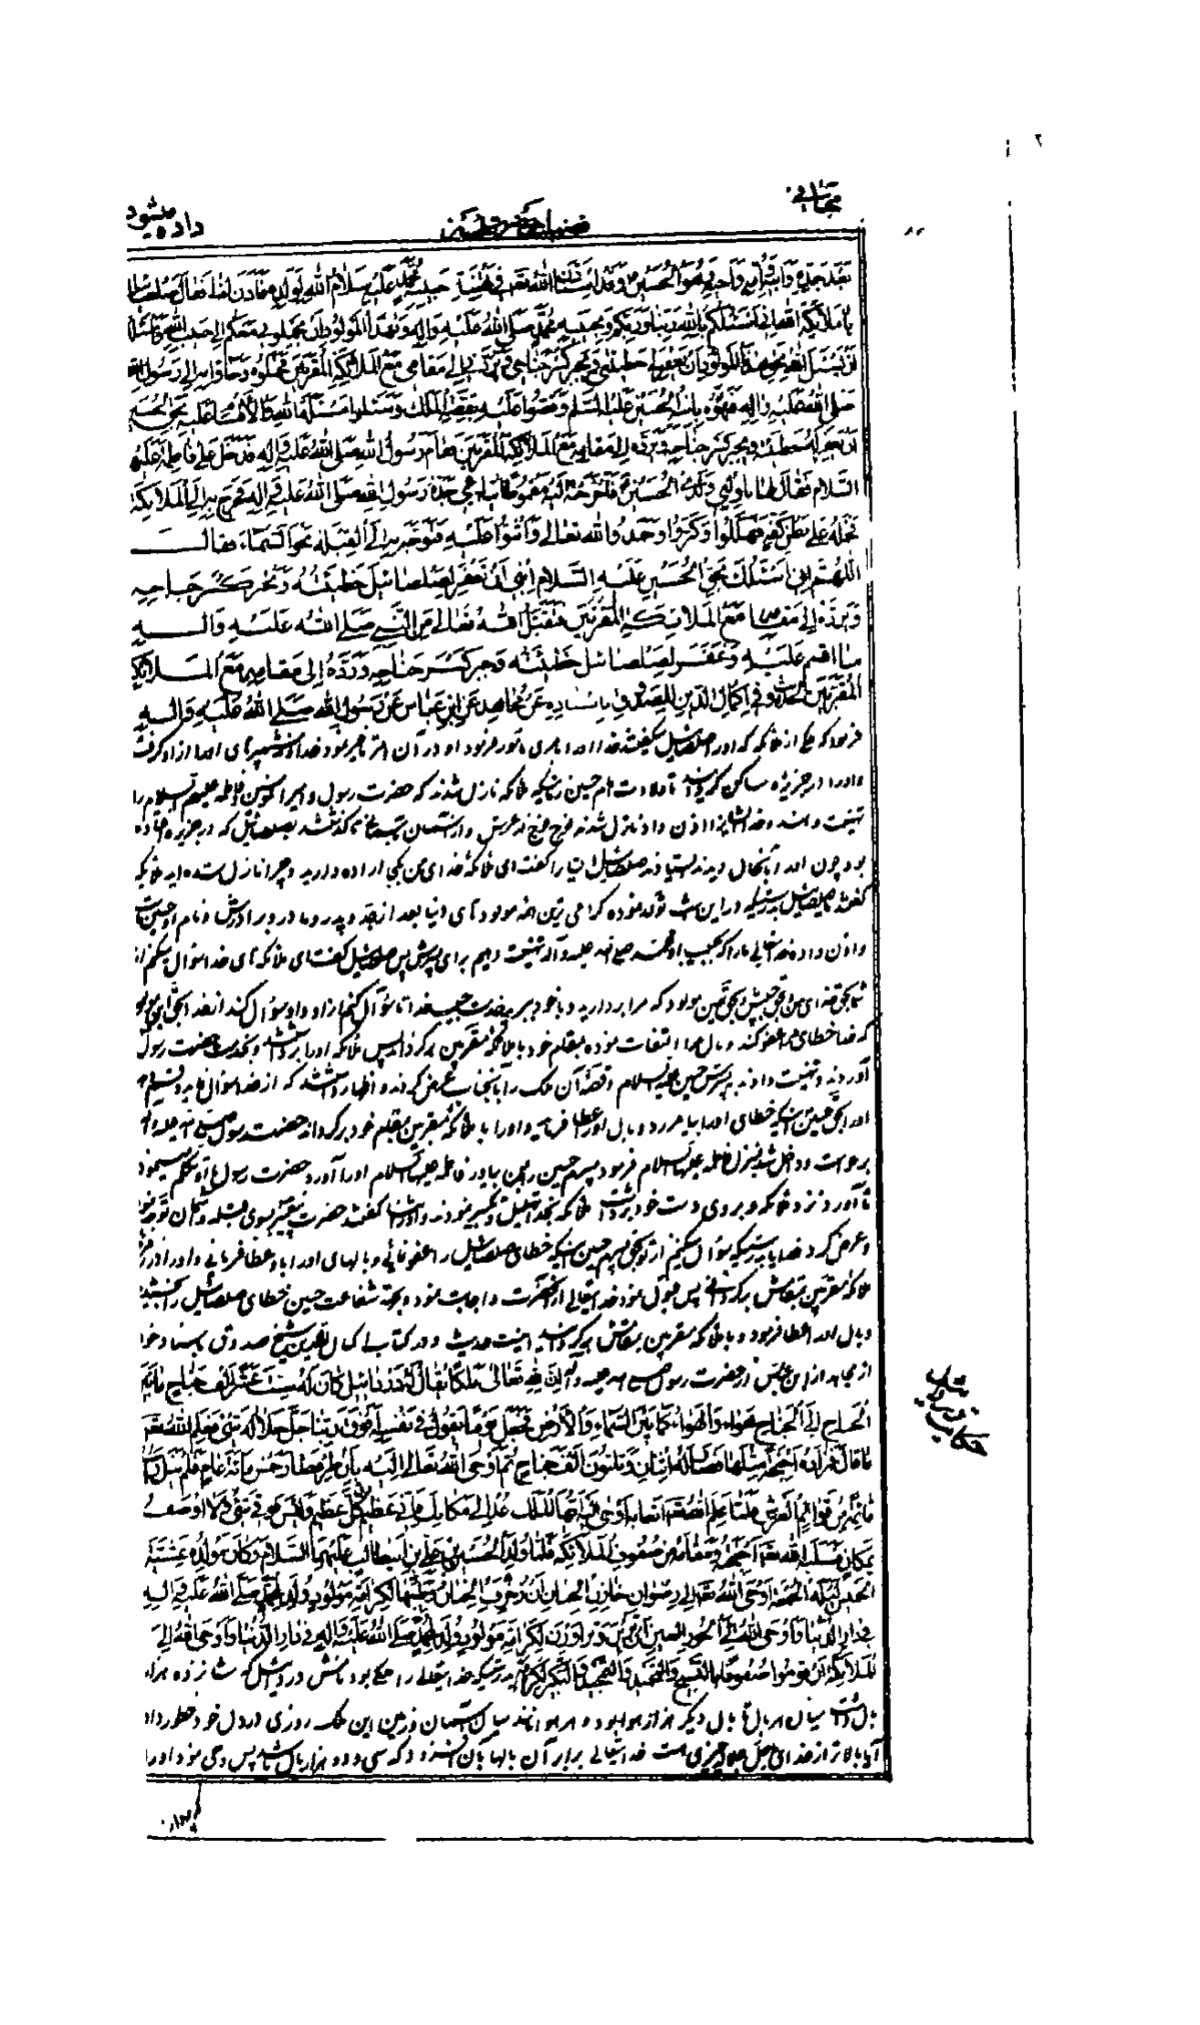 داده میشود
بعد جده وابیه وامه واخیه وهو الحسین وقد استاذنت الله تعالی فی تهنیة حبیبه محمد علیه سلام الله بولده فاذن لنا فقال صلصائیل
یا ملائکة الله انی اسئلکم بالله ربنا وربکم وبحبیبه محمد صلی الله علیه واله وبهذا المولود ان تحملونی معکم الی حبیب الله
ان یسئل الله بحق هذا المولود ان یغفر لی خطیئتی ویجبر کسر جناحی ویردنی الی مقامی مع الملائکة المقربین فحملوه وجاؤا به الی رسول الله
صلی الله علیه واله فهنؤه بابنه الحسین علیه السلم وقصوا علیه قصة الملک وسئلوا مسئلة الله والاقسام علیه بحق الحسین
ان یغفر له خطیئته ویجبر کسر جناحه ویرده الی مقامه مع الملائکة المقربین فقام رسول الله صلی الله علیه واله فدخل علی فاطمة علیها
السلام فقال لها ناولینی ولدی الحسین فاخرجته الیه جده رسول الله صلی الله علیه واله فخرج به الی الملائکة
فحمله علی بطن کفه فهللوا وکبروا وحمدوا الله تعالی واثنوا علیه فتوجه به الی القبلة نحو السماء فقال
اللهم انی اسئلک بحق الحسین علیه السلام ابنی ان تغفر لصلصائیل خطیئته وتجبر کسر جناحه
وترده الی مقامه مع الملائکة المقربین فتقبل الله تعالی من النبی صلی الله علیه واله
ما اقسم علیه وغفر لصلصائیل خطیئته وجبر کسر جناحه ورده الی مقامه مع الملائکة
المقربین الحدیث وفی اکمال الدین للصدوق باسناده عن مجاهد عن ابن عباس عن رسول الله صلی الله علیه واله
فرمود که یکی از ملائکه که او را صلصائیل میگفتند خدا او را بامری مامور فرمود او در آن امر تاخیر نمود خداوند شهپرهای او را از او گرفت
و او را در جزیره ساکن گردانید تا ولادت امام حسین ملائکه نازل شدند که حضرت رسول و امیر المومنین و فاطمه علیهم السلام را
تهنیت دهند و خدا ایشانرا اذن داد نازل شدند فوج فوج از عرش و از آسمان گذشتند بصلصائیل که در جزیره افتاده
بود چون او را بانحال دیدند ایستادند صلصائیل ایشان را گفت ای ملائکه خدای من بکجا اراده دارید و چرا نازل شده اید ملائکه
گفتند ای صلصائیل بدرستیکه در این شب تولد نموده گرامی ترین همه مولودهای دنیا بعد از جد و پدر و مادر و برادرش و نام او حسین است
و اذن داد خدایتعالی ما را که بحبیب او محمد صلی الله علیه واله تهنیت دهیم برای پسرش پس صلصائیل گفت ای ملائکه های خدا سؤال میکنم از
که خدا خطای مرا عفو کند و بال مرا التفات نموده بمقام خود با ملائکه مقربین برگرداند پس ملائکه او را برداشتند و بخدمت حضرت رسول
آوردند و تهنیت دادند به پسرش حسین علیه السلام و قصه آن ملک را بانجناب عرض کردند و اظهار داشتند که از خدا سؤال نماید
او را بحق حسین اینکه خطای او را بیامرزد و بال او را عطا فرماید و او را با ملائکه مقربین بمقام خود برگرداند حضرت رسول صلی الله علیه واله
برخواست و داخل شد بمنزل فاطمه علیها السلام فرمود پسرم حسین را بمن بیاور فاطمه علیها السلام او را آورد حضرت رسول
تا آورد نزد ملائکه و بروی دست خود برداشت ملائکه تهلیل و تکبیر نمودند گفتند حضرت پیغمبر بسوی قبله و آسمان توجه نمود
و عرض کرد خدایا بدرستیکه سؤال میکنم از تو بحق پسرم حسین اینکه خطای صلصائیل را عفو نمائی و بالهای او را باو عطا فرمائی و او را در
ملائکه مقربین بمقامش برگردانی پس قبول نمود خدایتعالی از آنحضرت و اجابت نمود و بجهة شفاعت حسین خطای صلصائیل را بخشید
و بال او را عطا فرمود و با ملائکه مقربین بمقامش برگردانید اینست حدیث و در کتاب اکمال الدین شیخ صدوق باسناد خود
از مجاهد از ابن عباس از حضرت رسول صلی الله علیه واله ان لله تعالی ملکا یقال له دردائیل کان له ستة عشر الف جناح ما بین
الجناح الی الجناح هواء والهواء کما بین السماء والارض فجعل یوما یقول فی نفسه افوق ربنا جل جلاله شیء فعلم الله تعالی
ما قال فزاده اجنحة مثلها فصار له اثنان وثلثون الف جناح ثم اوحی الله تعالی الیه بان طر فطار خمس مائة عام فلم ینل راسه
قائمة من قوائم العرش فلما علم الله تعالی اتعابه اوحی الیه ایها الملک عد الی مکانک فانا عظیم کل عظیم ولیس فوقی شیء ولا اوصف
بمکان فسلبه الله تعالی اجنحته ومقامه من صفوف الملائکة فلما ولد الحسین بن علی بن ابیطالب علیهما السلام وکان مولده عشیة
الخمیس لیلة الجمعة اوحی الله تعالی الی رضوان خازن الجنان ان زخرف الجنان وطیبها لکرامة مولود ولد لمحمد صلی الله علیه واله
فی دار الدنیا واوحی الله الی الحور العین ان تزین وتزاورن لکرامة مولود ولد لمحمد صلی الله علیه واله فی دار الدنیا واوحی الله الی
الملائکة ان قوموا صفوفا بالتسبیح والتحمید والتمجید والتکبیر لکرامة بدرستیکه خدایتعالی را ملکی بود نامش دردائیل که شانزده هزار
بال داشت میان هر بال تا بال دیگر هزار هوا بود و هر هوا مانند میان آسمان و زمین این ملک روزی در دل خود خطور داد
آیا بالاتر از خدای عز وجل چیزی هست خدایتعالی برابر آن بالها بآن افزود که سی و دو هزار بال شد پس وحی نمود او را
حکایت دردائیل
که پرواز